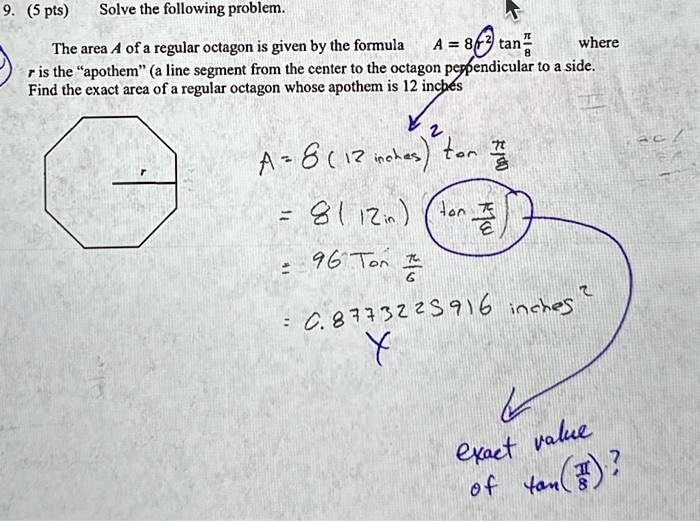 9. (5 pts) Solve the following problem.
The area A of a regular octagon is given by the formula A = 8r² tan π/8 where
r is the “apothem” (a line segment from the center to the octagon perpendicular to a side.
Find the exact area of a regular octagon whose apothem is 12 inches
r
A = 8 (12 inches)² tan π/8
= 8(12in) (tan π/8)
= 96 Tan π/6
= 0.8773225916 inches²
X
exact value
of tan(π/8)?